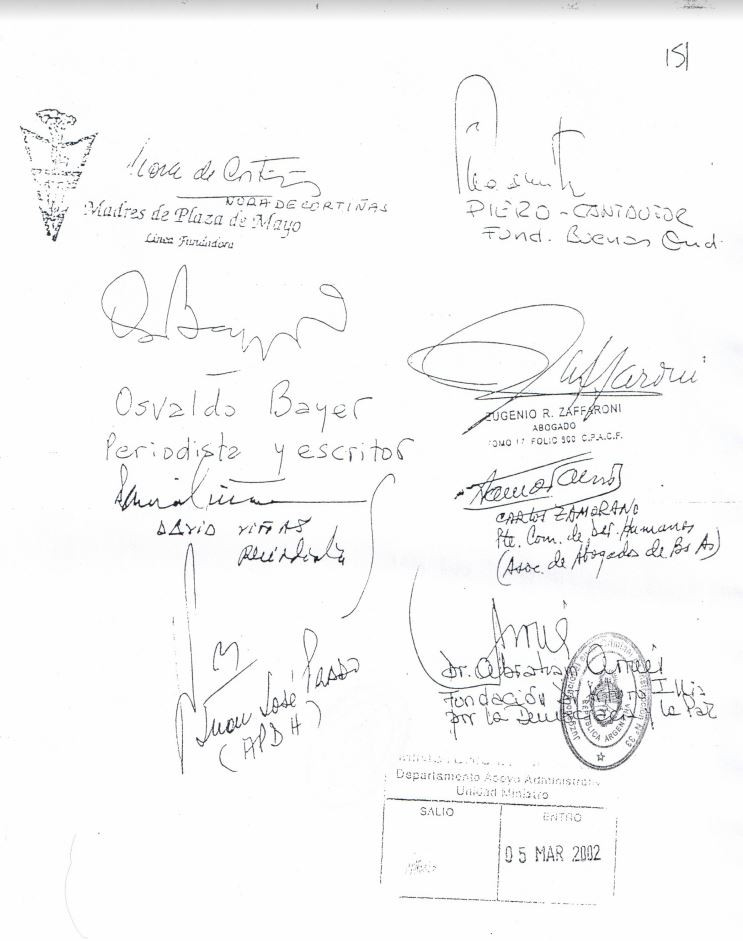 151
Nora de Cortiñas
NORA DE CORTIÑAS
Madres de Plaza de Mayo
Línea Fundadora
PIERO - CANTAUTOR
Fund. Buenas Ond.
Osvaldo Bayer
Periodista y escritor
Zaffaroni
EUGENIO R. ZAFFARONI
ABOGADO
TOMO 17 FOLIO 500 C.P.A.C.F.
DAVID VIÑAS
CARLOS ZAMORANO
Pte. Com. de Der. Humanos
(Asoc. de Abogados de Bs As)
Juan José Passo
(APDH)
Dr. Abraham
Fundación Illia
por la Democracia y la Paz
REPUBLICA ARGENTINA
Nº 33
Departamento Apoyo Administrativo
Unidad Ministro
SALIO
ENTRO
05 MAR 2002